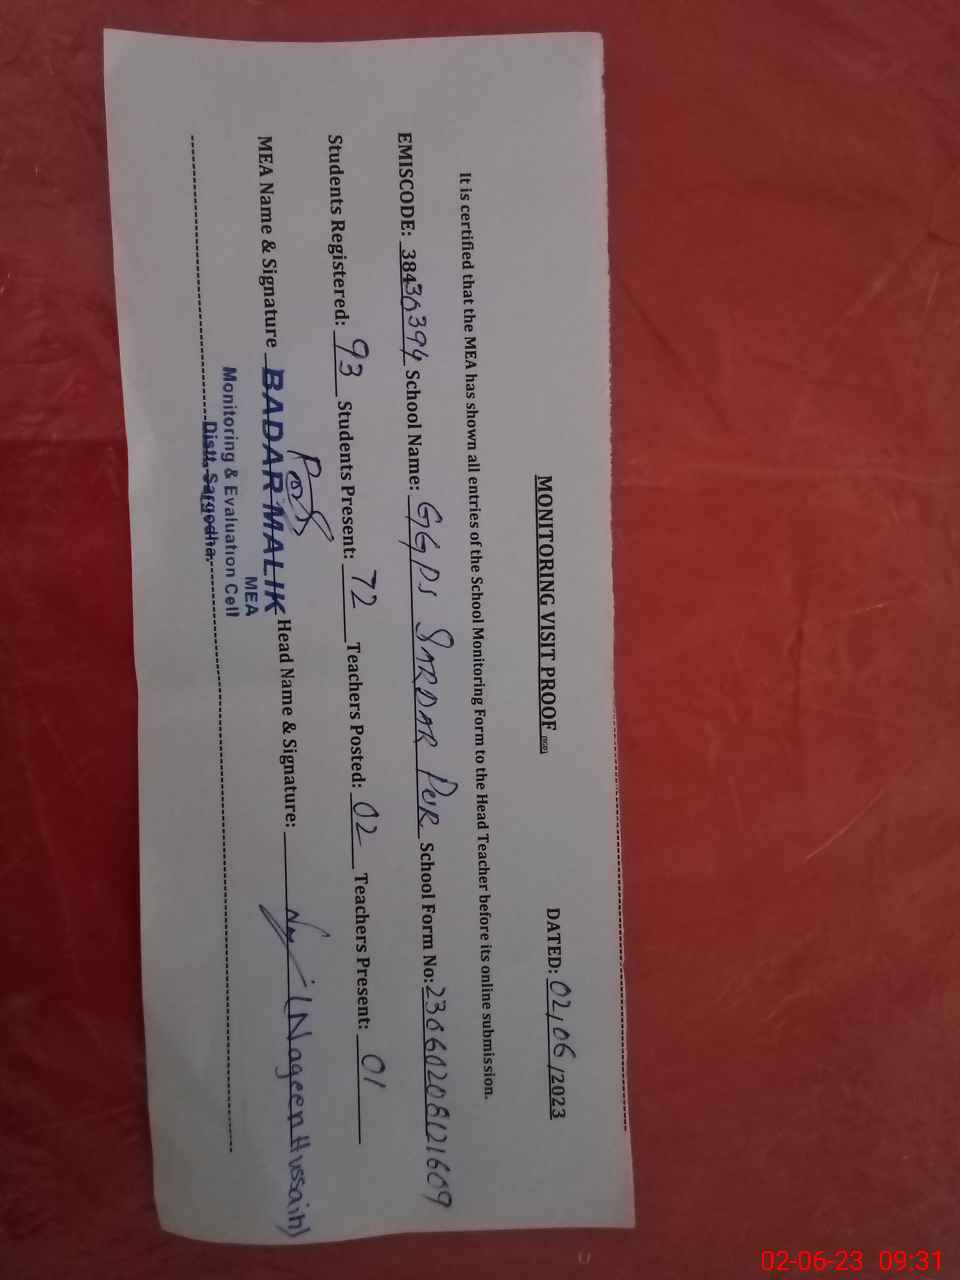 MONITORING VISIT PROOF
DATED: 02/06/2023
It is certified that the MEA has shown all entries of the School Monitoring Form to the Head Teacher before its online submission.
EMISCODE: 38430394 School Name: GGPS SARDAR PUR School Form No: 23060208121609
Students Registered: 93 Students Present: 72 Teachers Posted: 02 Teachers Present: 01
MEA Name & Signature BADAR MALIK Head Name & Signature: (Nageen Hussain)
MEA
Monitoring & Evaluation Cell
Distt, Sargodha.
02-06-23 09:31